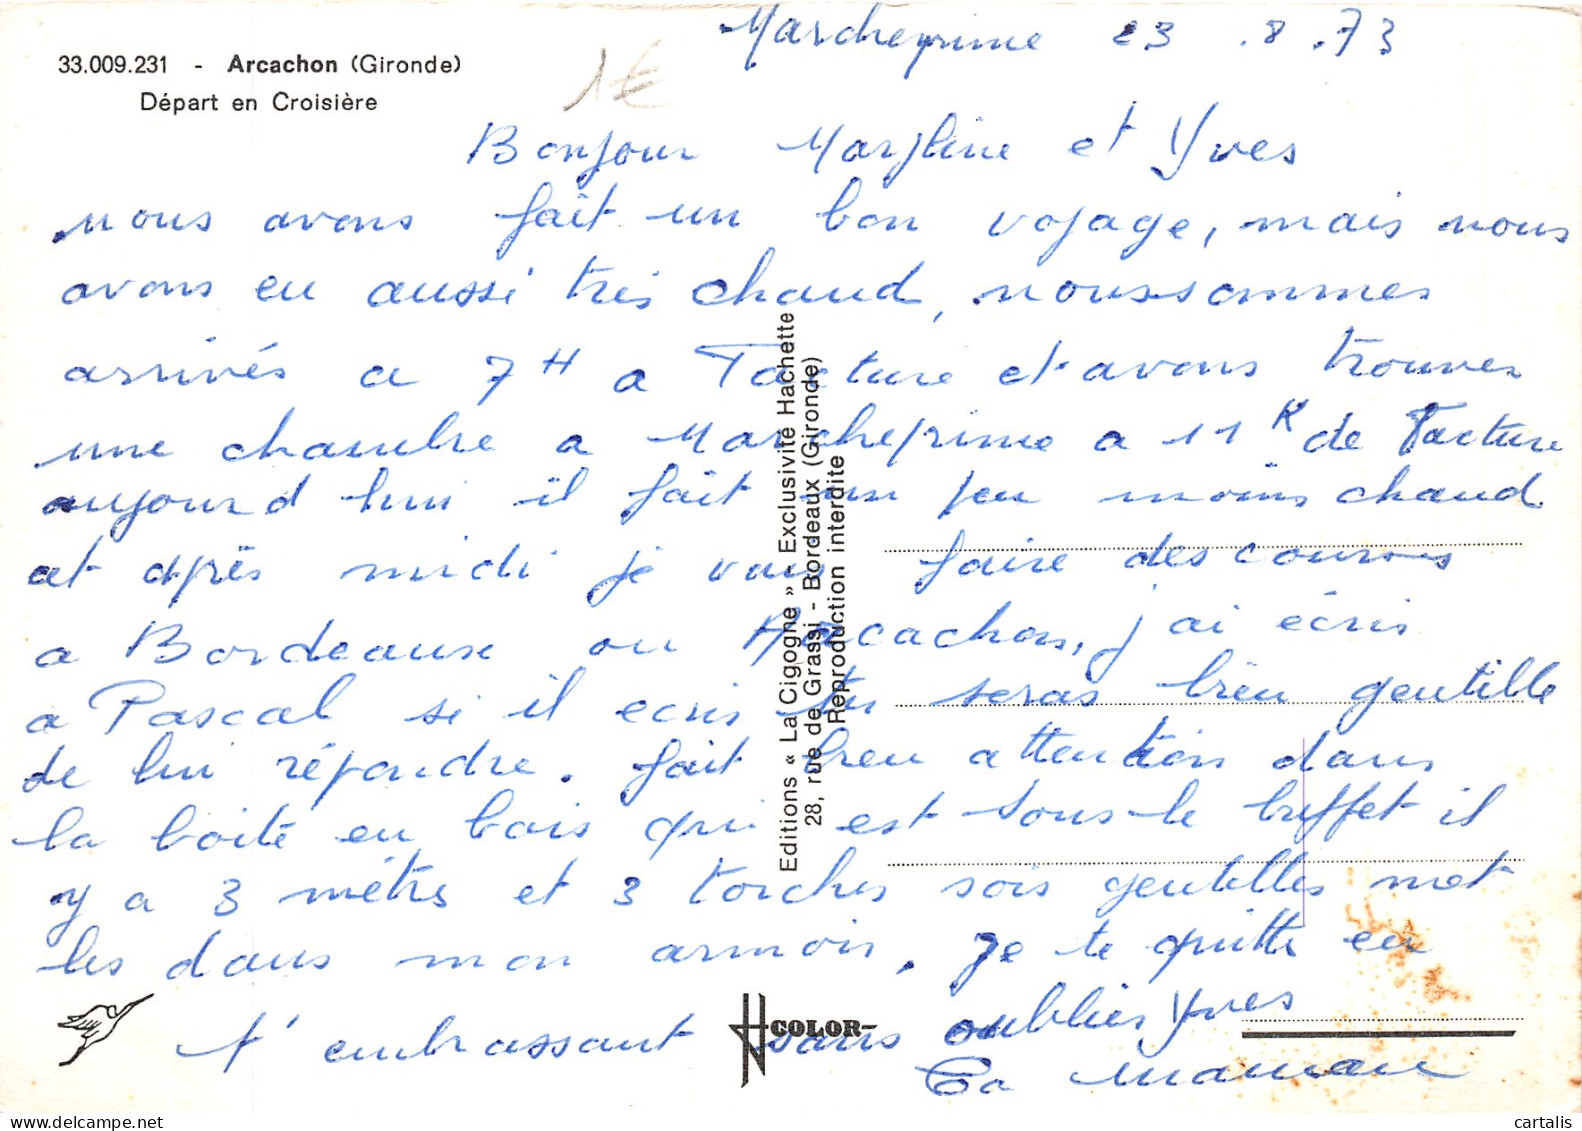 Marcheprime 23.8.73
33.009.231 - Arcachon (Gironde)
Départ en Croisière
1€
Bonjour Maryline et Yves
nous avons fait un bon voyage, mais nous
avons eu aussi très chaud, nous sommes
arrivés a 7H a Facture et avons trouver
une chambre a Marcheprime a 11K de Facture
aujourd hui il fait un peu moins chaud
et après midi je vais faire des courses
a Bordeaux ou Arcachon, j'ai écris
a Pascal si il ecris tu seras bien gentille
de lui répondre. fait bien attention dans
la boite en bois qui est sous le buffet il
y a 3 mètres et 3 torches sois gentilles met
les dans mon armoir. Je te quitte en
t'embrassant sans oublier Yves
Ta maman
Editions « La Cigogne » Exclusivité Hachette
28, rue de Grassi - Bordeaux (Gironde)
Reproduction interdite
COLOR
cartalis
delcampe.net